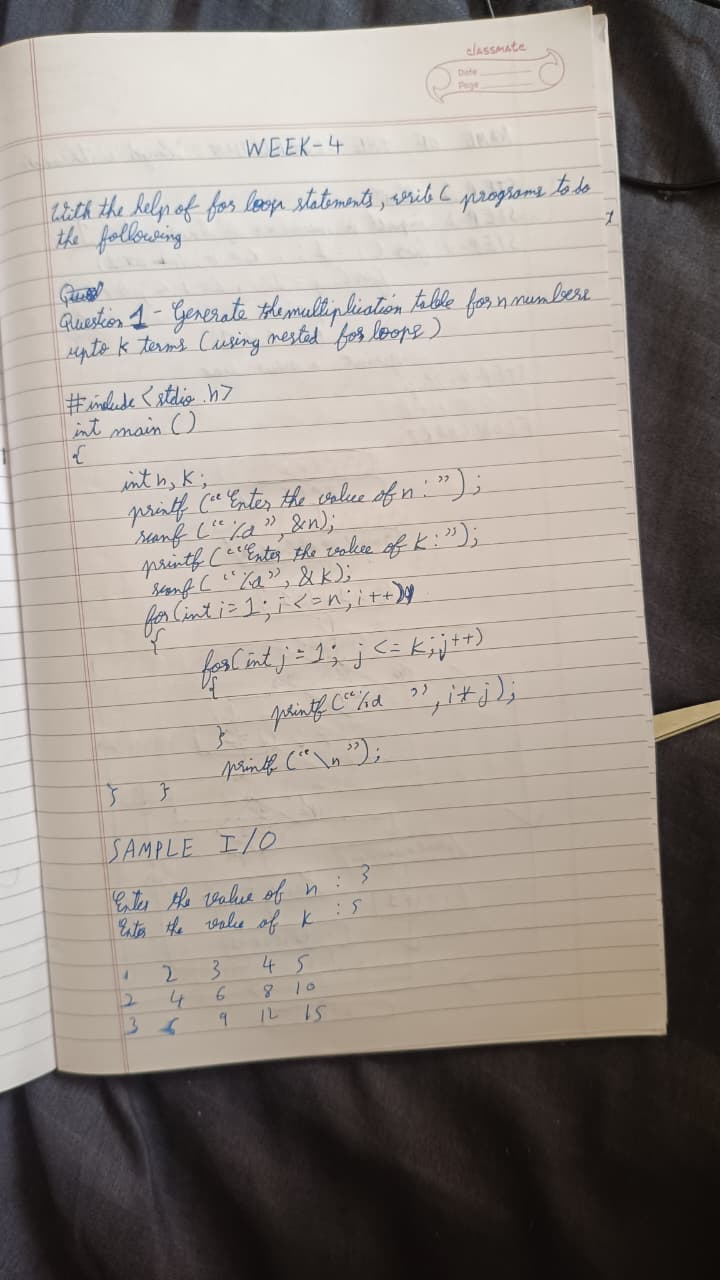 classmate
Date
Page
WEEK-4
With the help of for loop statements, write C programs to do
the following
Question 1 - Generate the multiplication table for n numbers
upto k terms (using nested for loops)
#include <stdio.h>
int main ()
{
int n, k;
printf ("Enter the value of n : ");
scanf ("%d", &n);
printf ("Enter the value of k : ");
scanf ("%d", &k);
for (int i = 1; i <= n; i++)
{
for (int j = 1; j <= k; j++)
{
printf ("%d ", i * j);
}
printf ("\n");
} }
SAMPLE I/O
Enter the value of n : 3
Enter the value of k : 5
1 2 3 4 5
2 4 6 8 10
3 6 9 12 15